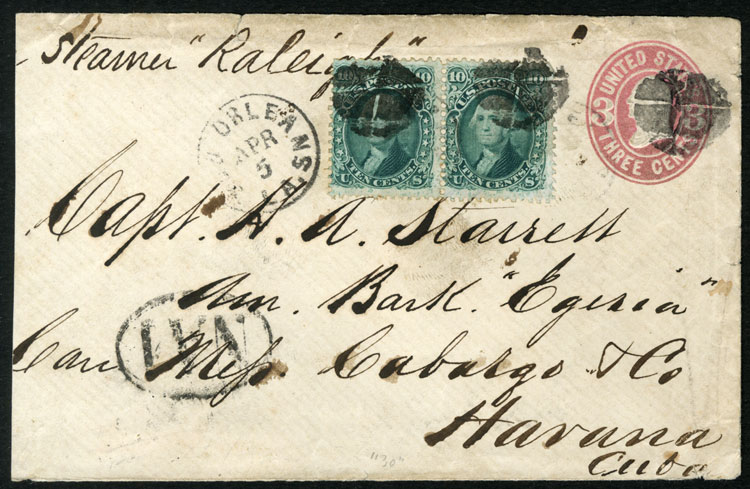 Steamer "Raleigh"
10 10
U.S. POSTAGE
TEN CENTS
U S
10 10
U.S. POSTAGE
TEN CENTS
U S
UNITED STA
3 3
THREE CENTS
ORLEANS
APR
5
LA.
Capt. H. A. Starrett
Am. Bark. "Egeria"
Care Mess Cabargo & Co
Havana
Cuba
"30"